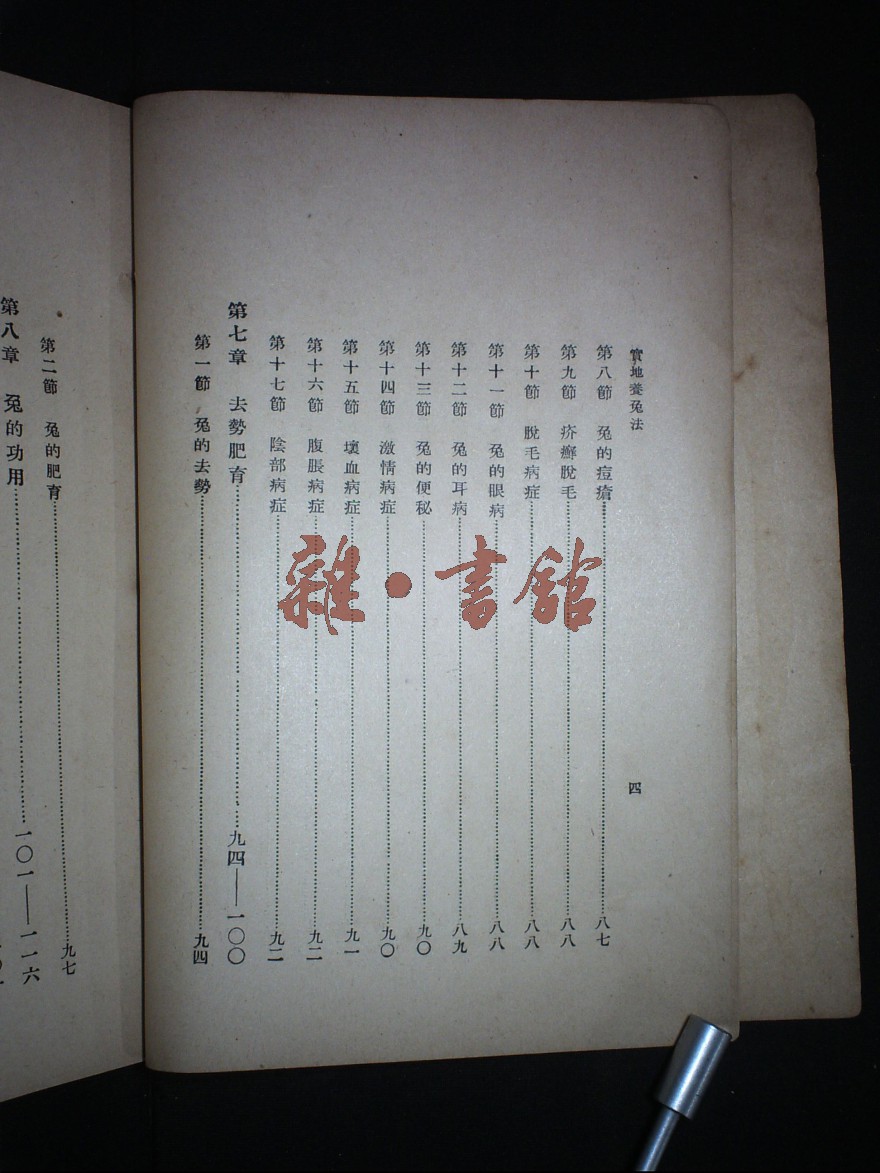 實地養兔法
四
第八節 兔的痘瘡……八七
第九節 疥癬脫毛……八八
第十節 脫毛病症……八八
第十一節 兔的眼病……八八
第十二節 兔的耳病……八九
第十三節 兔的便秘……九〇
第十四節 激情病症……九〇
第十五節 壞血病症……九一
第十六節 腹脹病症……九二
第十七節 陰部病症……九二
第七章 去勢肥育……九四—一〇〇
第一節 兔的去勢……九四
第二節 兔的肥育……九七
第八章 兔的功用……一〇一—一一六
雜·書館